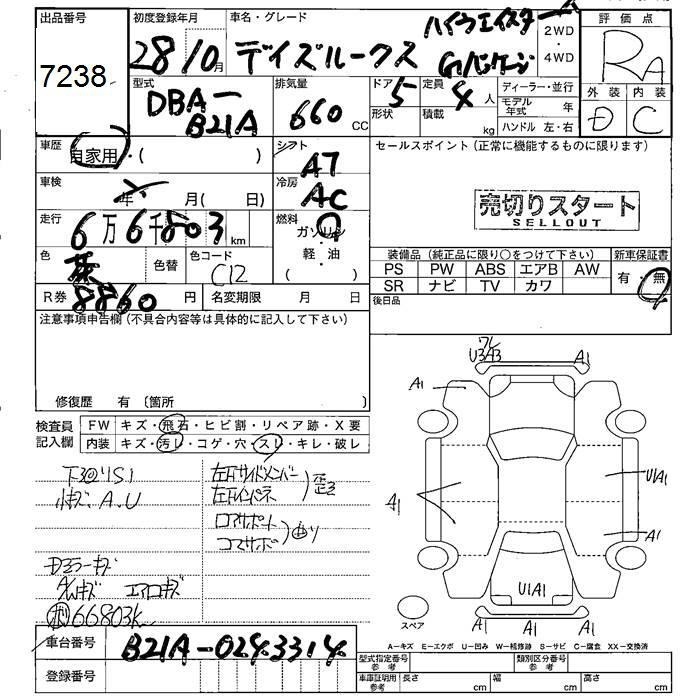 出品番号
7238
初度登録年月
28/10月
車名・グレード
デイズルークス
ハイウエイスター
Gパッケージ
2WD
・
4WD
評価点
RA
外装 内装
D C
型式
DBA-
B21A
排気量
660 CC
ドア 5
形状
定員 4人
積載 kg
ディーラー・並行
モデル年式 年
ハンドル 左・右
車歴
自家用・( )
シフト
AT
セールスポイント(正常に機能するものに限ります)
売切りスタート
SELLOUT
車検
年 月( 日)
冷房
AC
走行
6万6千803km
燃料
ガソリン
軽・油
( )
色
茶
色替
色コード
C12
装備品(純正品に限り○をつけて下さい)
新車保証書
PS PW ABS エアB AW
有・無
SR ナビ TV カワ
R券
8860円
名変期限 月 日
後日品
注意事項申告欄(不具合内容等は具体的に記入して下さい)
修復歴 有 〔箇所 〕
検査員
記入欄
FW キズ・飛石・ヒビ割・リペア跡・X要
内装 キズ・汚レ・コゲ・穴・スレ・キレ・破レ
小キズ A.U
左右サイドメンバー
左右インパネ
歪ミ
ロアサポート
コアサポ
曲り
Dミラーキズ
AWキズ エアロキズ
66803k
U3A3
A1
A1
A1
U1A1
A1
A1
U1A1
A1
A1
A1
スペア
A-キズ E-エクボ U-凹み W-補修跡 S-サビ C-腐食 XX-交換済
車台番号
B21A-0243314
登録番号
型式指定番号
参考
類別区分番号
参考
車庫証明用
参考
長さ cm 幅 cm 高さ cm